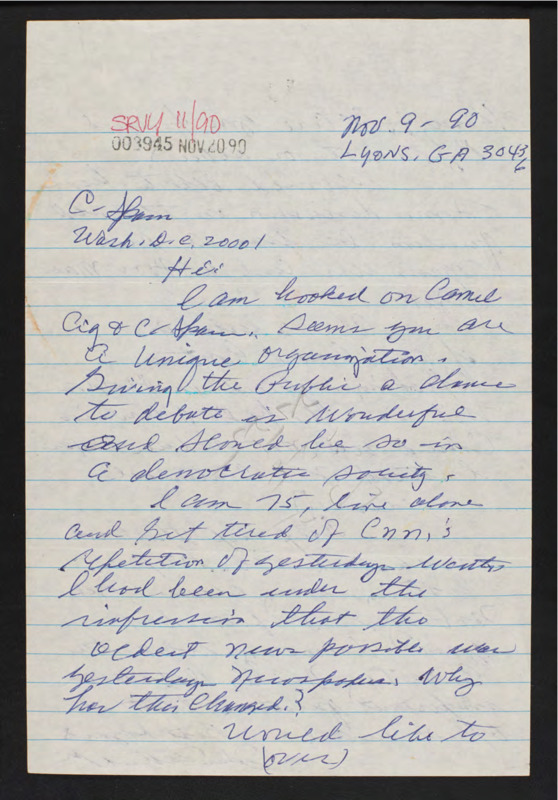 SRVY 11/90
003945 NOV 20 90
Nov. 9 - 90
LYONS, GA 30436
C-Span
Wash. D.C. 20001
Hi:
I am hooked on Camel
Cig & C-Span. Seems you are
a unique organization.
Giving the Public a chance
to debate is wonderful
and should be so in
a democratic society.
I am 75, live alone
and get tired of Cnn,s
repetition of yesterdays
I had been under the
impression that the
oldest news possible was
yesterdays newspapers. Why
has this changed?
Would like to
(over)